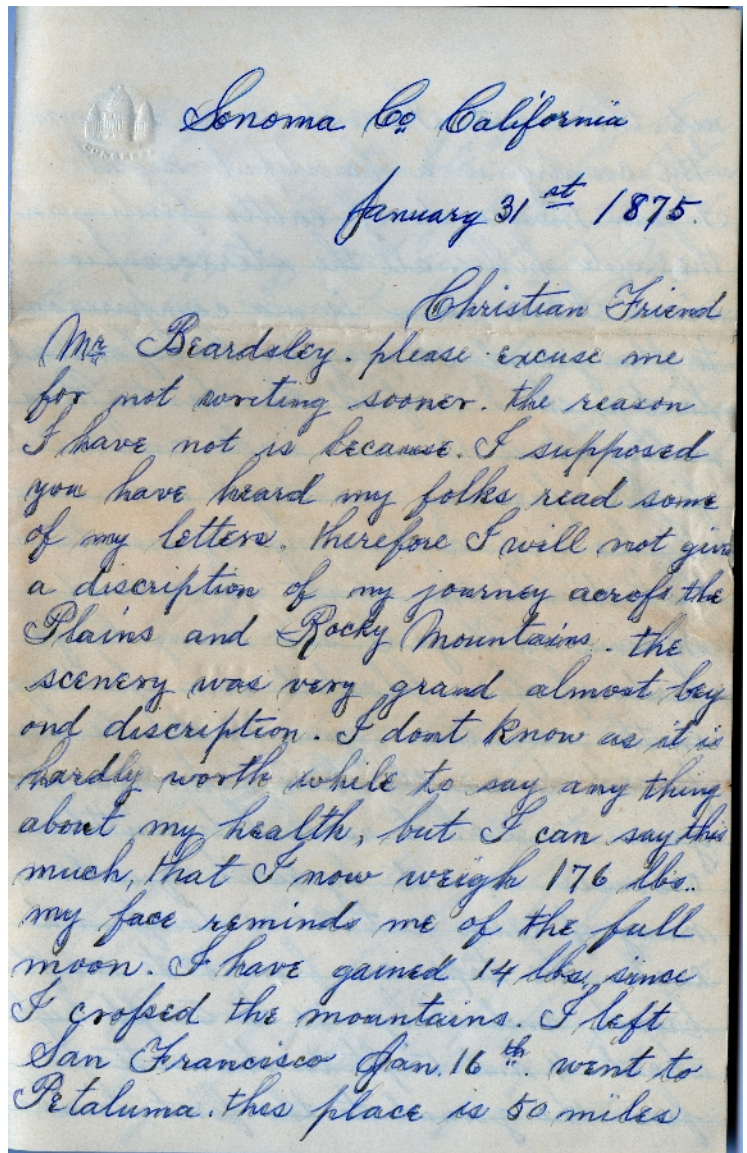 CONGRESS
Sonoma Co California
January 31st 1875.
Christian Friend
Mr Beardsley. please excuse me
for not writing sooner. the reason
I have not is because. I supposed
you have heard my folks read some
of my letters. therefore I will not give
a discription of my journey across the
Plains and Rocky Mountains. the
scenery was very grand almost bey
ond discription. I dont know as it is
hardly worth while to say any thing
about my health, but I can say this
much, that I now weigh 176 lbs.
my face reminds me of the full
moon. I have gained 14 lbs. since
I crossed the mountains. I left
San Francisco Jan. 16th. went to
Petaluma. this place is 50 miles